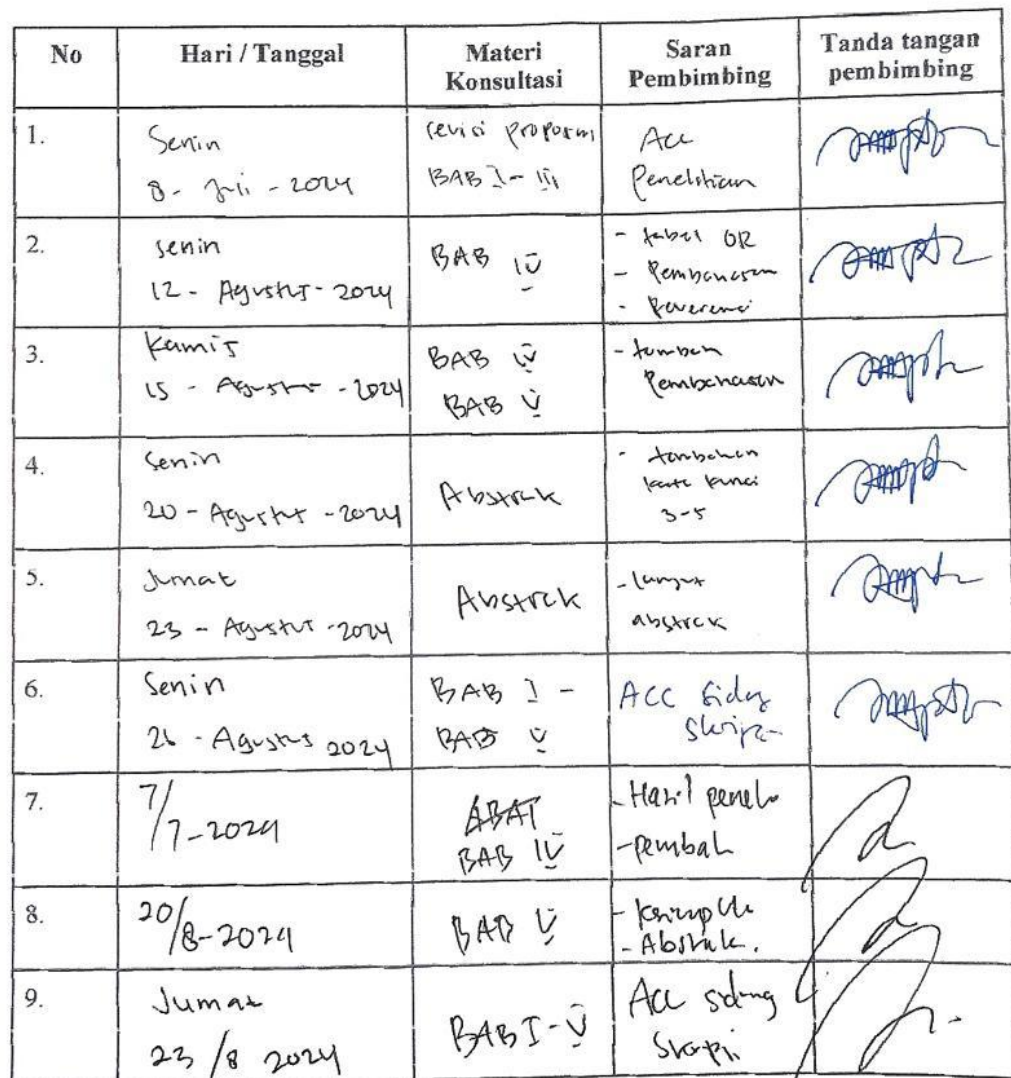 No Hari / Tanggal Materi Konsultasi Saran Pembimbing Tanda tangan pembimbing
1. Senin
8 - Juli - 2024
revisi proposal
BAB I - III
Acc
Penelitian
2. senin
12 - Agustus - 2024
BAB IV
- tabel OR
- Pembahasan
- Reverensi
3. Kamis
15 - Agustus - 2024
BAB IV
BAB V
- tambah
Pembahasan
4. Senin
20 - Agustus - 2024
Abstrak
- tambahan
kata kunci
3-5
5. Jumat
23 - Agustus - 2024
Abstrak
- lanjut
abstrak
6. Senin
26 - Agustus 2024
BAB I -
BAB V
ACC Sidang
Skripsi
7. 7/7-2024
BAB IV
- Hasil penel
- pembah
8. 20/8-2024
BAB V
- Abstrak.
9. Jumat
23/8 2024
BAB I - V
Acc sidang
Skripsi